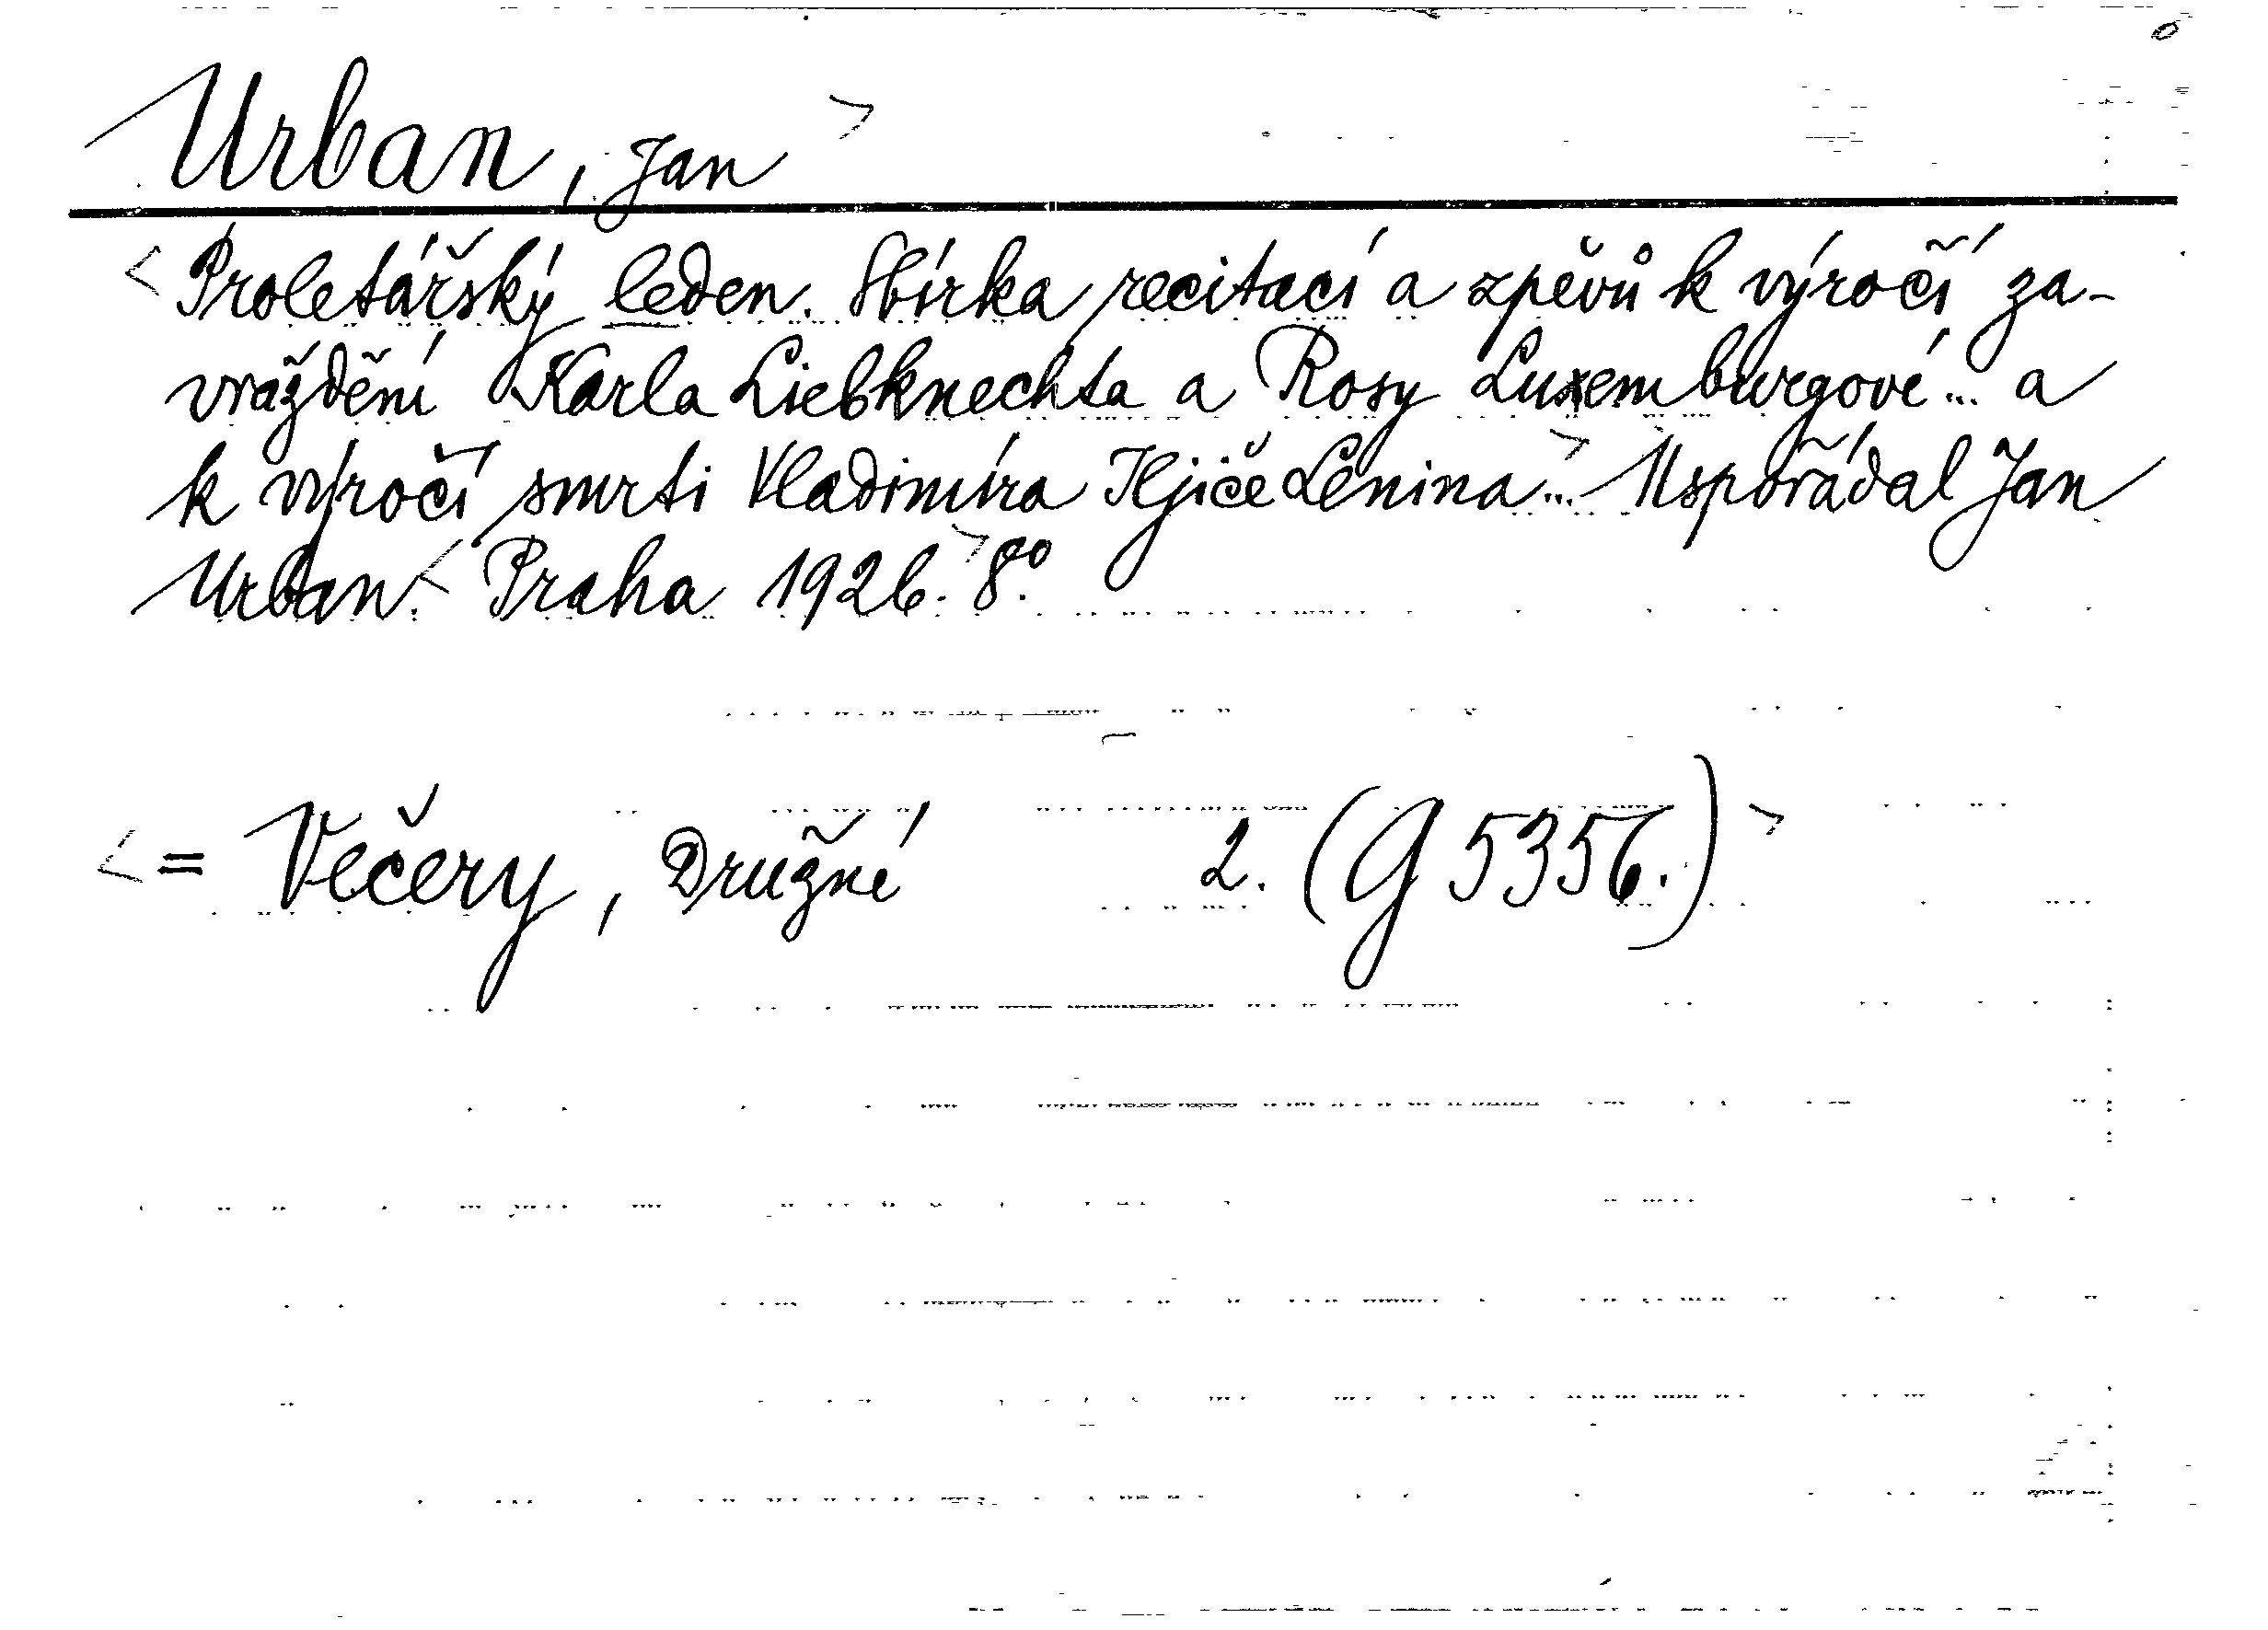 Urban, Jan >
< Proletářský leden. Sbírka recitací a zpěvů k výročí za-
vraždění Karla Liebknechta a Rosy Luxemburgové... a
k výročí smrti Vladimíra Iljiče Lenina...> Uspořádal Jan
Urban. < Praha 1926.> 8°.
< = Večery, Družné 2. (G 5356.) >